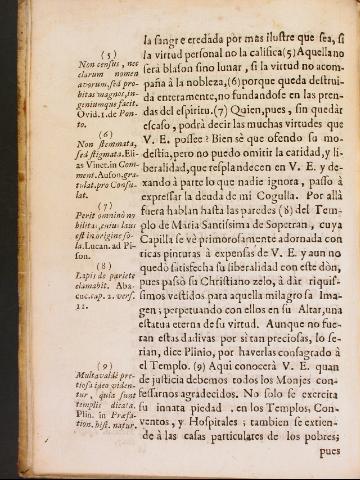 la sangre eredada por mas ilustre que sea, si
la virtud personal no la califica (5) Aquella no
será blason sino lunar, si la virtud no acom-
paña à la nobleza, (6) porque queda destrui-
da enteramente, no fundandose en las pren-
das del espiritu. (7) Quien, pues, sin quedàr
escaso, podrà decir las muchas virtudes que
V. E. possee? Bien sè que ofendo su mo-
destia, pero no puedo omitir la caridad, y li-
beralidad, que resplandecen en V. E. y de-
xando à parte lo que nadie ignora, passo à
expressar la deuda de mi Cogulla. Por allà
fuera hablan hasta las paredes (8) del Tem-
plo de Maria Santissima de Sopetran, cuya
Capilla se vè primorosamente adornada con
ricas pinturas à expensas de V. E. y aun no
quedò satisfecha su liberalidad con este dòn,
pues passò su Christiano zelo, à dàr riquis-
simos vestidos para aquella milagrosa Ima-
gen; perpetuando con ellos en su Altar, una
estatua eterna de su virtud. Aunque no fue-
ran estas dadivas por sì tan preciosas, lo se-
rian, dice Plinio, por haverlas consagrado à
el Templo. (9) Aqui conocerà V. E. quan
de justicia debemos todos los Monjes con-
fessarnos agradecidos. No solo se exercita
su innata piedad en los Templos, Con-
ventos, y Hospitales; tambien se extien-
de à las casas particulares de los pobres;
pues
(5)
Non census, nec
clarum nomen
avorum, sed pro-
bitas magnos, in-
geniumque facit.
Ovid. 1. de Pon-
to.
(6)
Non stemmata,
sed stigmata. Eli-
as Vinet. in Com-
ment. Auson. gra-
tulat. pro Consu-
lat.
(7)
Perit omninò no-
bilitas, cujus laus
est in origine so-
la. Lucan. ad Pi-
son.
(8)
Lapis de pariete
clamabit. Aba-
cuc. cap. 2. vers.
11.
(9)
Multa valdè pre-
tiosa ideo viden-
tur, quia sunt
templis dicata.
Plin. in Præfa-
tion. hist. natur.